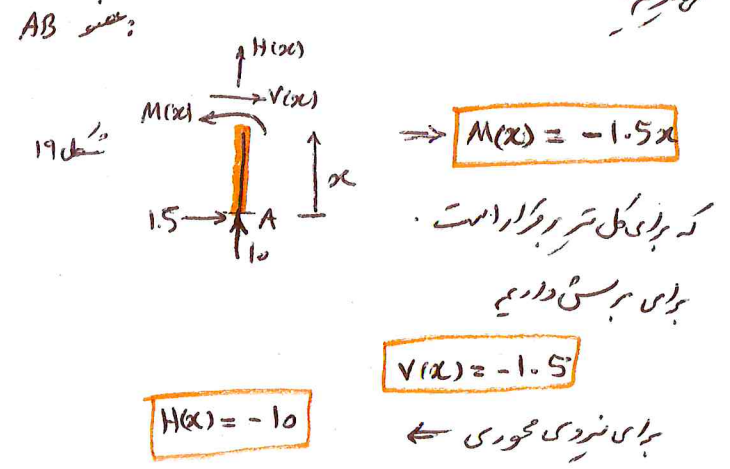 عضو AB :
H(x)
V(x)
M(x)
شکل 19
x
1.5 → A
10
⇒ M(x) = -1.5x
که برای کل تیر برقرار است .
برای برش داریم
V(x) = -1.5
برای نیروی محوری ←
H(x) = -10